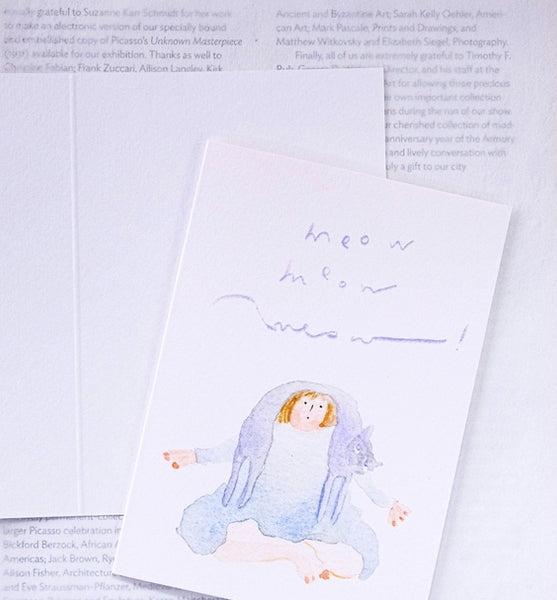 grateful to Suzanne Karr Schmidt for her work
to make an electronic version of our specially bound
and embellished copy of Picasso's Unknown Masterpiece
available for our exhibition. Thanks as well to
Christine Fabian; Frank Zuccari, Allison Langley, Kirk
Ancient and Byzantine Art; Sarah Kelly Oehler, Ameri-
can Art; Mark Pascale, Prints and Drawings, and
Matthew Witkovsky and Elizabeth Siegel, Photography.
Finally, all of us are extremely grateful to Timothy F.
director, and his staff at the
Art for allowing three precious
own important collection
during the run of our show.
cherished collection of mod-
anniversary year of the Armory
and lively conversation with
a gift to our city
meow
meow
meow!
larger Picasso celebration
Bickford Berzock, African
Americas; Jack Brown,
Alison Fisher,
and Eve Straussman-Pflanzer,